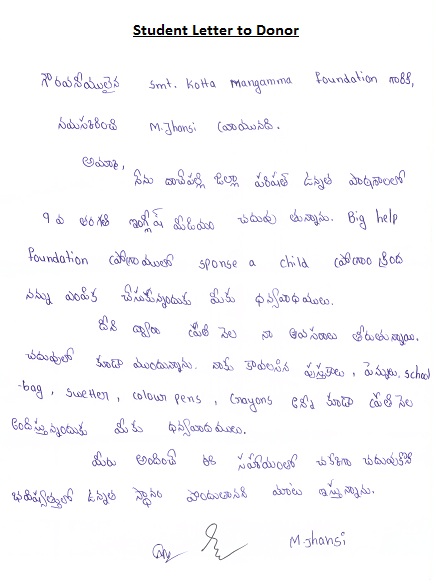 Student Letter to Donor
గౌరవనీయులైన Smt. Kotta Mangamma foundation గారికి,
నమస్కరించి M.Jhansi వ్రాయునది.
అమ్మా,
నేను దాచేపల్లి జిల్లా పరిషత్ ఉన్నత పాఠశాలలో
9 వ తరగతి ఇంగ్లీష్ మీడియం చదువు తున్నాను. Big help
foundation ప్రోగ్రాములో sponse a child ప్రోగ్రాం క్రింద
నన్ను ఎంపిక చేసుకున్నందుకు మీకు ధన్యవాదములు.
దీని ద్వారా ప్రతి నెల నా అవసరాలు తీరుతున్నాయి.
చదువులో కూడా ముందున్నాను. నాకు కావలసిన పుస్తకాలు, పెన్నులు, school
-bag, swetter, colour pens, Crayons అన్ని కూడా ప్రతి నెల
అందిస్తున్నందుకు మీకు ధన్యవాదములు.
మీరు అందించే ఈ సహాయంలో చక్కగా చదువుకొని
భవిష్యత్తులో ఉన్నత స్థానం పొందుతానని మాట ఇస్తున్నాను.
M.Jhansi